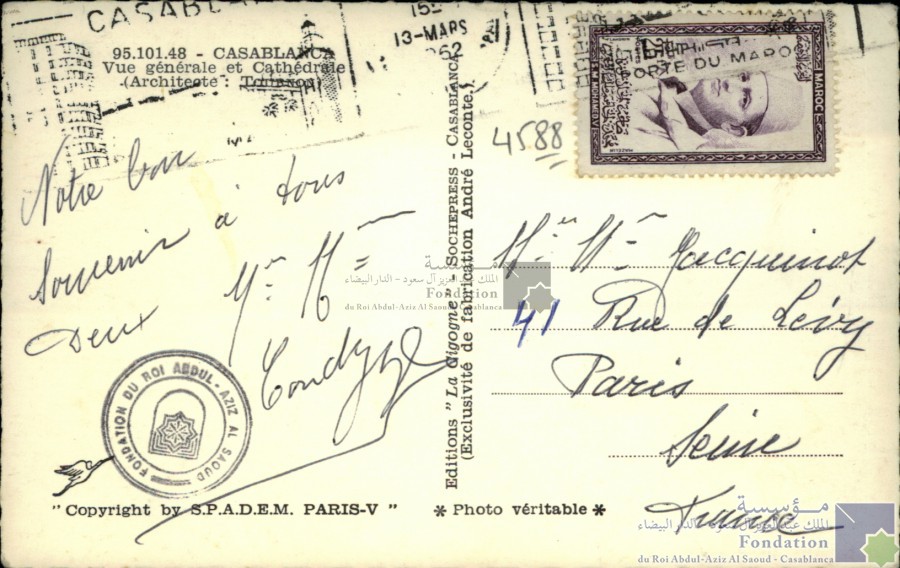 CASABLANCA
15
13-MARS
1962
95.101.48 - CASABLANCA
Vue générale et Cathédrale
(Architecte : Tournon)
ORTE DU MAROC
MAROC
MOHAMED V
4588
Notre bon
souvenir à tous
Deux
Mr Mme
FONDATION DU ROI ABDUL-AZIZ AL SAOUD
"Copyright by S.P.A.D.E.M. PARIS-V"
Editions "La Cigogne" - SOCHEPRESS - CASABLANCA
(Exclusivité de fabrication André Leconte.)
* Photo véritable *
Mr Mme Jacquinot
41 Rue de Lévy
Paris
Seine
France
مؤسسة
الملك عبد العزيز آل سعود - الدار البيضاء
Fondation
du Roi Abdul-Aziz Al Saoud - Casablanca
مؤسسة
الملك عبد العزيز آل سعود - الدار البيضاء
Fondation
du Roi Abdul-Aziz Al Saoud - Casablanca